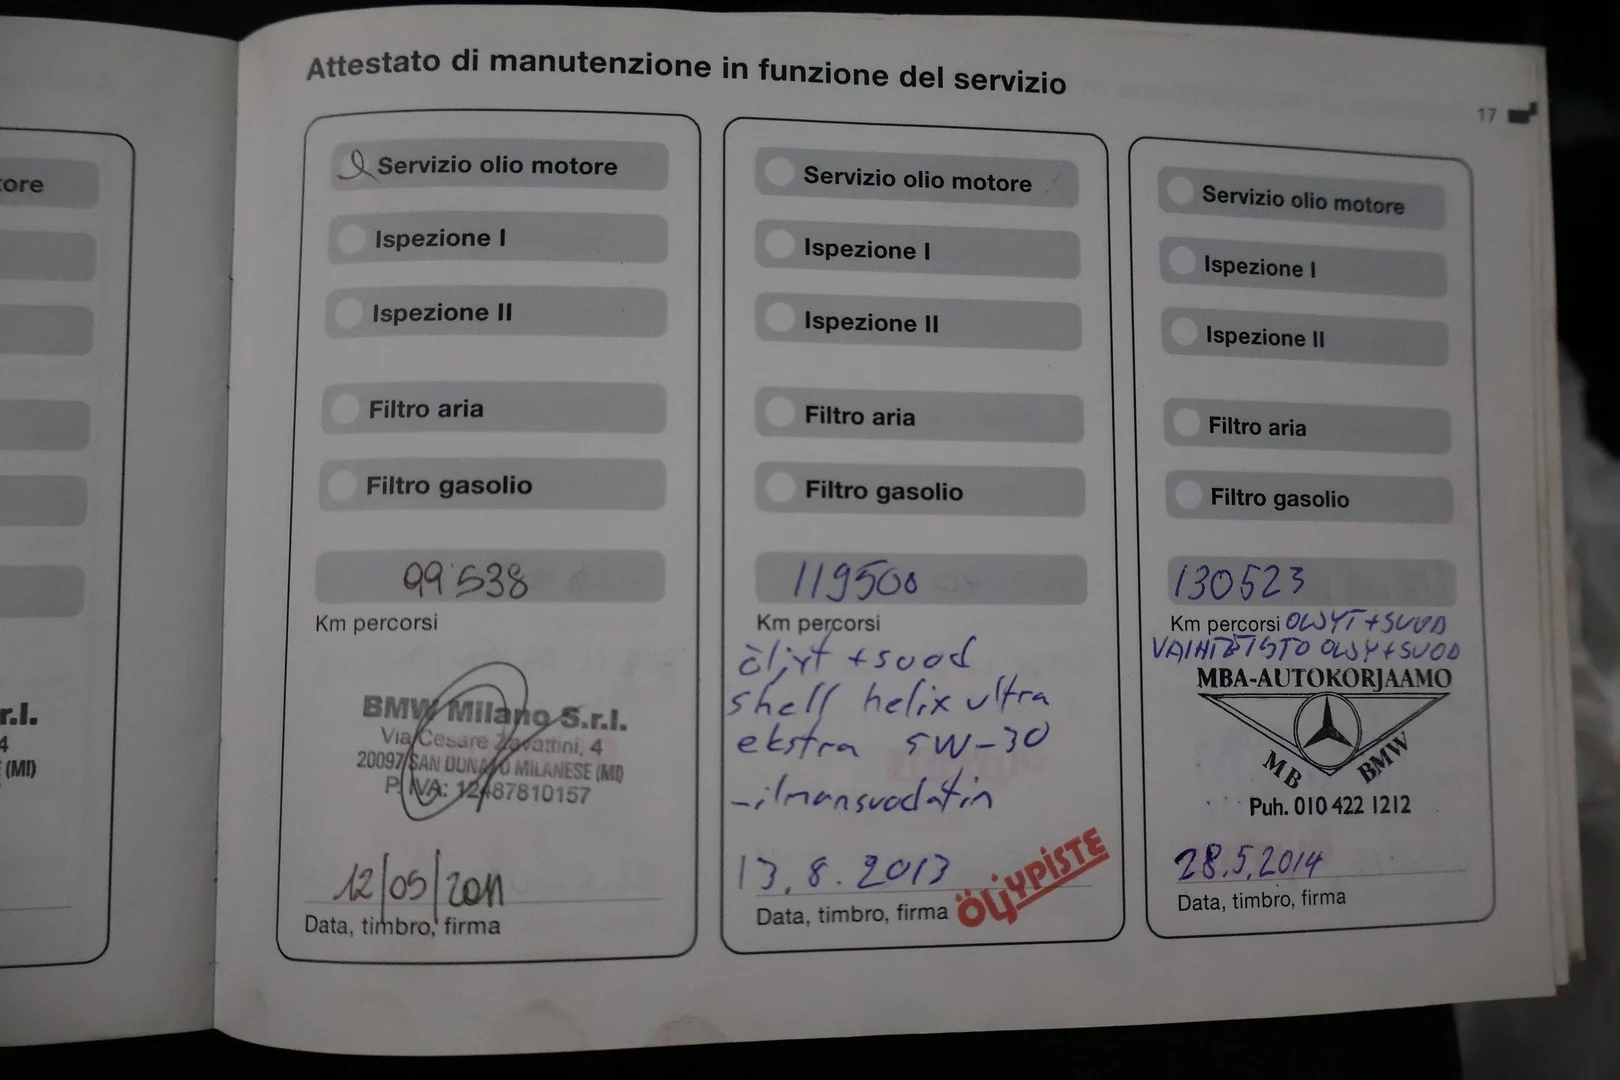 ore
r.l.
4
(MI)
Attestato di manutenzione in funzione del servizio
17
Servizio olio motore
Ispezione I
Ispezione II
Filtro aria
Filtro gasolio
99'538
Km percorsi
BMW Milano S.r.l.
Via Cesare Zavattini, 4
20097 SAN DONATO MILANESE (MI)
P. IVA: 12487810157
12/05/2011
Data, timbro, firma
Servizio olio motore
Ispezione I
Ispezione II
Filtro aria
Filtro gasolio
119500
Km percorsi
öljyt + suod
shell helix ultra
ekstra 5W-30
-ilmansuodatin
13.8.2013
Data, timbro, firma
ÖLJYPISTE
Servizio olio motore
Ispezione I
Ispezione II
Filtro aria
Filtro gasolio
130523
Km percorsi ÖLJYT+SUOD
VAIHTEISTO ÖLJY+SUOD
MBA-AUTOKORJAAMO
MB BMW
Puh. 010 422 1212
28.5.2014
Data, timbro, firma